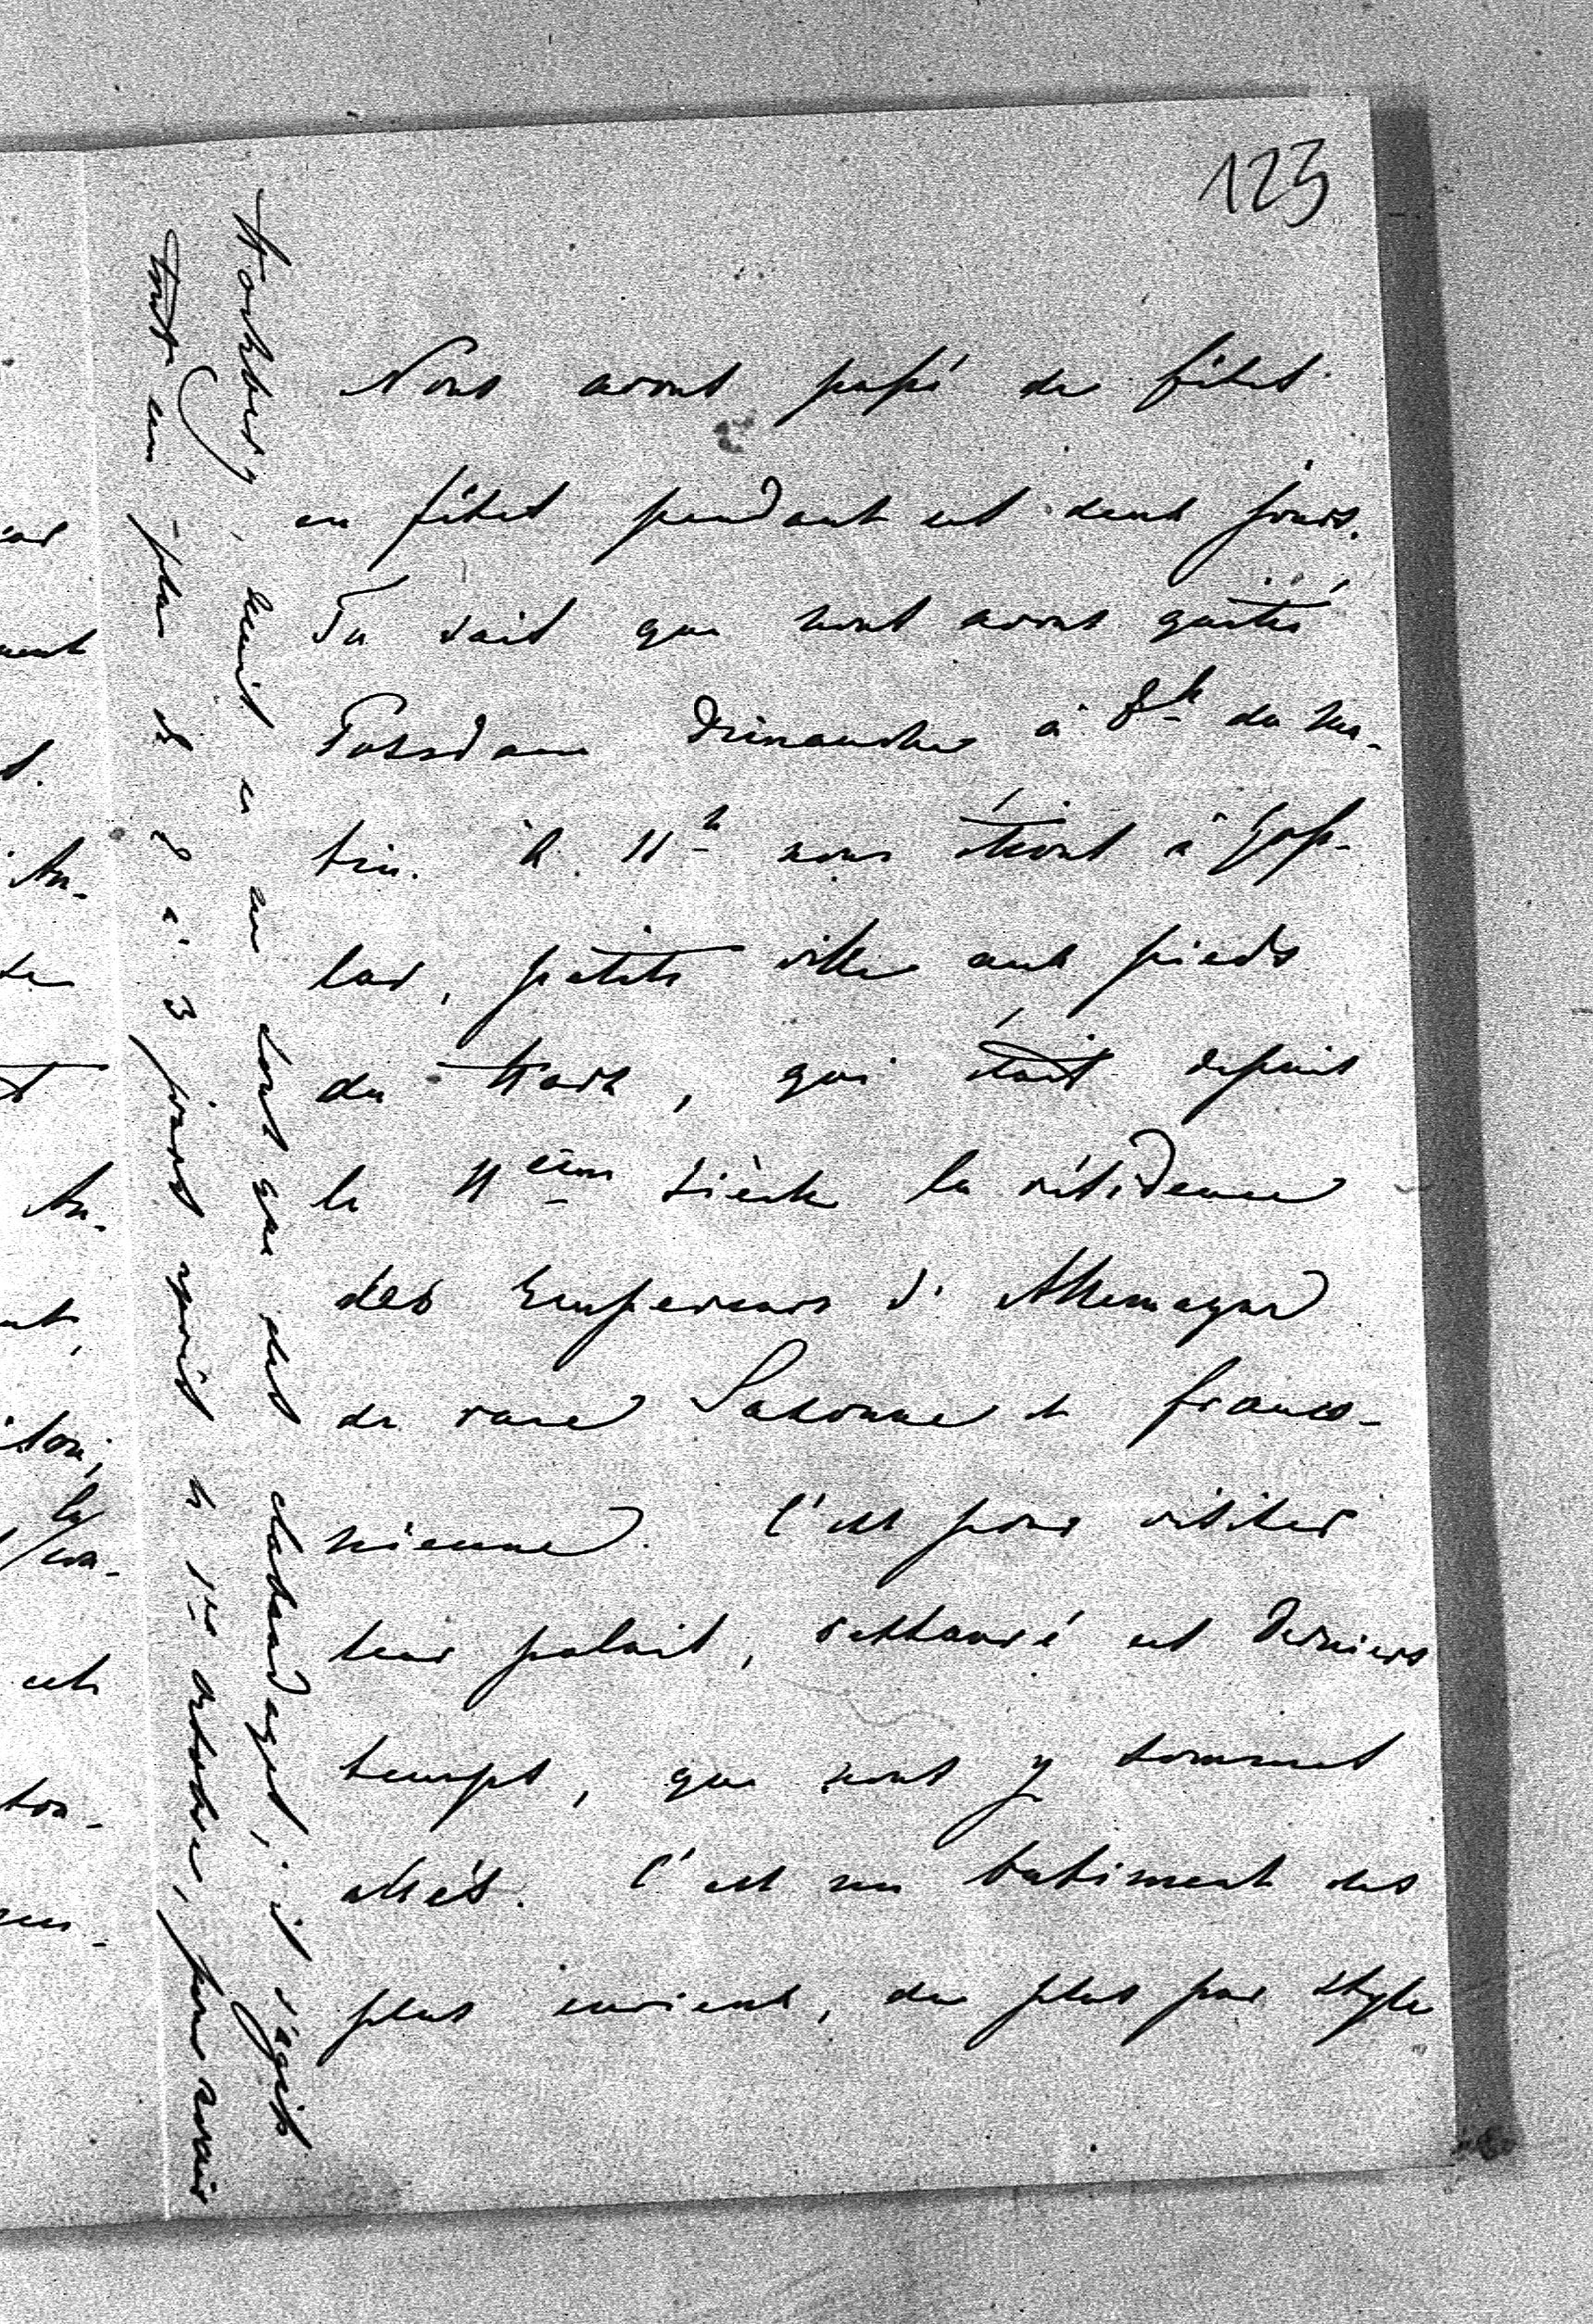 123
Nous avons passé de fêtes
en fêtes pendant ces deux jours.
Tu sais que nous avons quitté
Potsdam Dimanche à 8h du ma-
tin. A 11h nous étions à Gos-
lar, petite ville aux pieds
du Harz, qui était depuis
le 11ème siècle la résidence
des Empereurs d'Allemagne
de race Saxonne et franco-
nienne. C'est pour visiter
leur palais, restauré ces derniers
temps, que nous y sommes
allés. C'est un batiment des
plus curieux, du plus pur style
Hartzburg, mais ce ne sont que des
il s'agit
tout au plus de 2 à 3 jours après le 1er Octobre, pour